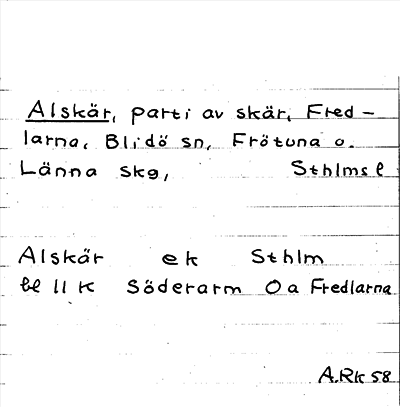 Alskär, parti av skär, Fred-
larna, Blidö sn, Frötuna o.
Länna skg, Sthlms l
Alskär ek Sthlm
bl 11 K Söderarm Oa Fredlarna
A.Rk 58